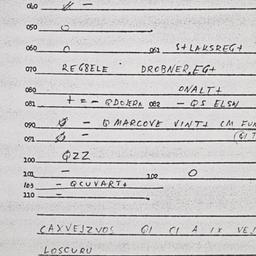 040 –
050 O
060 O 061 S+LAKSREG+
070 REGBELE DROBNER, EG+
080 ONALT+
081 + = – QDOJERA 082 – QS ELSN
090 Ø – Q MARCOVE VINT+ CM FUN
091 Ø –
100 QZZ
101 – 102 O
103 – QCUVART+
110 –
CAYVEJZVOS QI CI A IX VEJ
LOSCURU